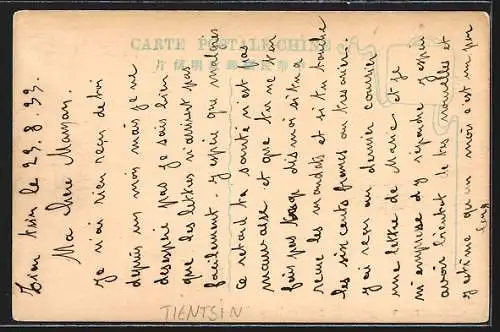 CARTE POSTALE CHINE
Tien tsin le 29.8.33.
Ma chère Maman.
Je n'ai rien reçu de toi
depuis un mois mais je ne
desespère pas je sais bien
que les lettres n'arrivent pas
facilement. J'espère que malgres
ce retard ta santé n'est pas
mauvaise et que tu ne t'en
fais pas dis moi si tu
recue les mandats et si tu touche
les six cents francs au tresorier.
J'ai reçu au dernier courrier
une lettre de Marie et je
m'empresse d'y repondre j'espère
avoir bientot de tes nouvelles et
j'estime qu'un mois c'est un peu
long
TIENTSIN